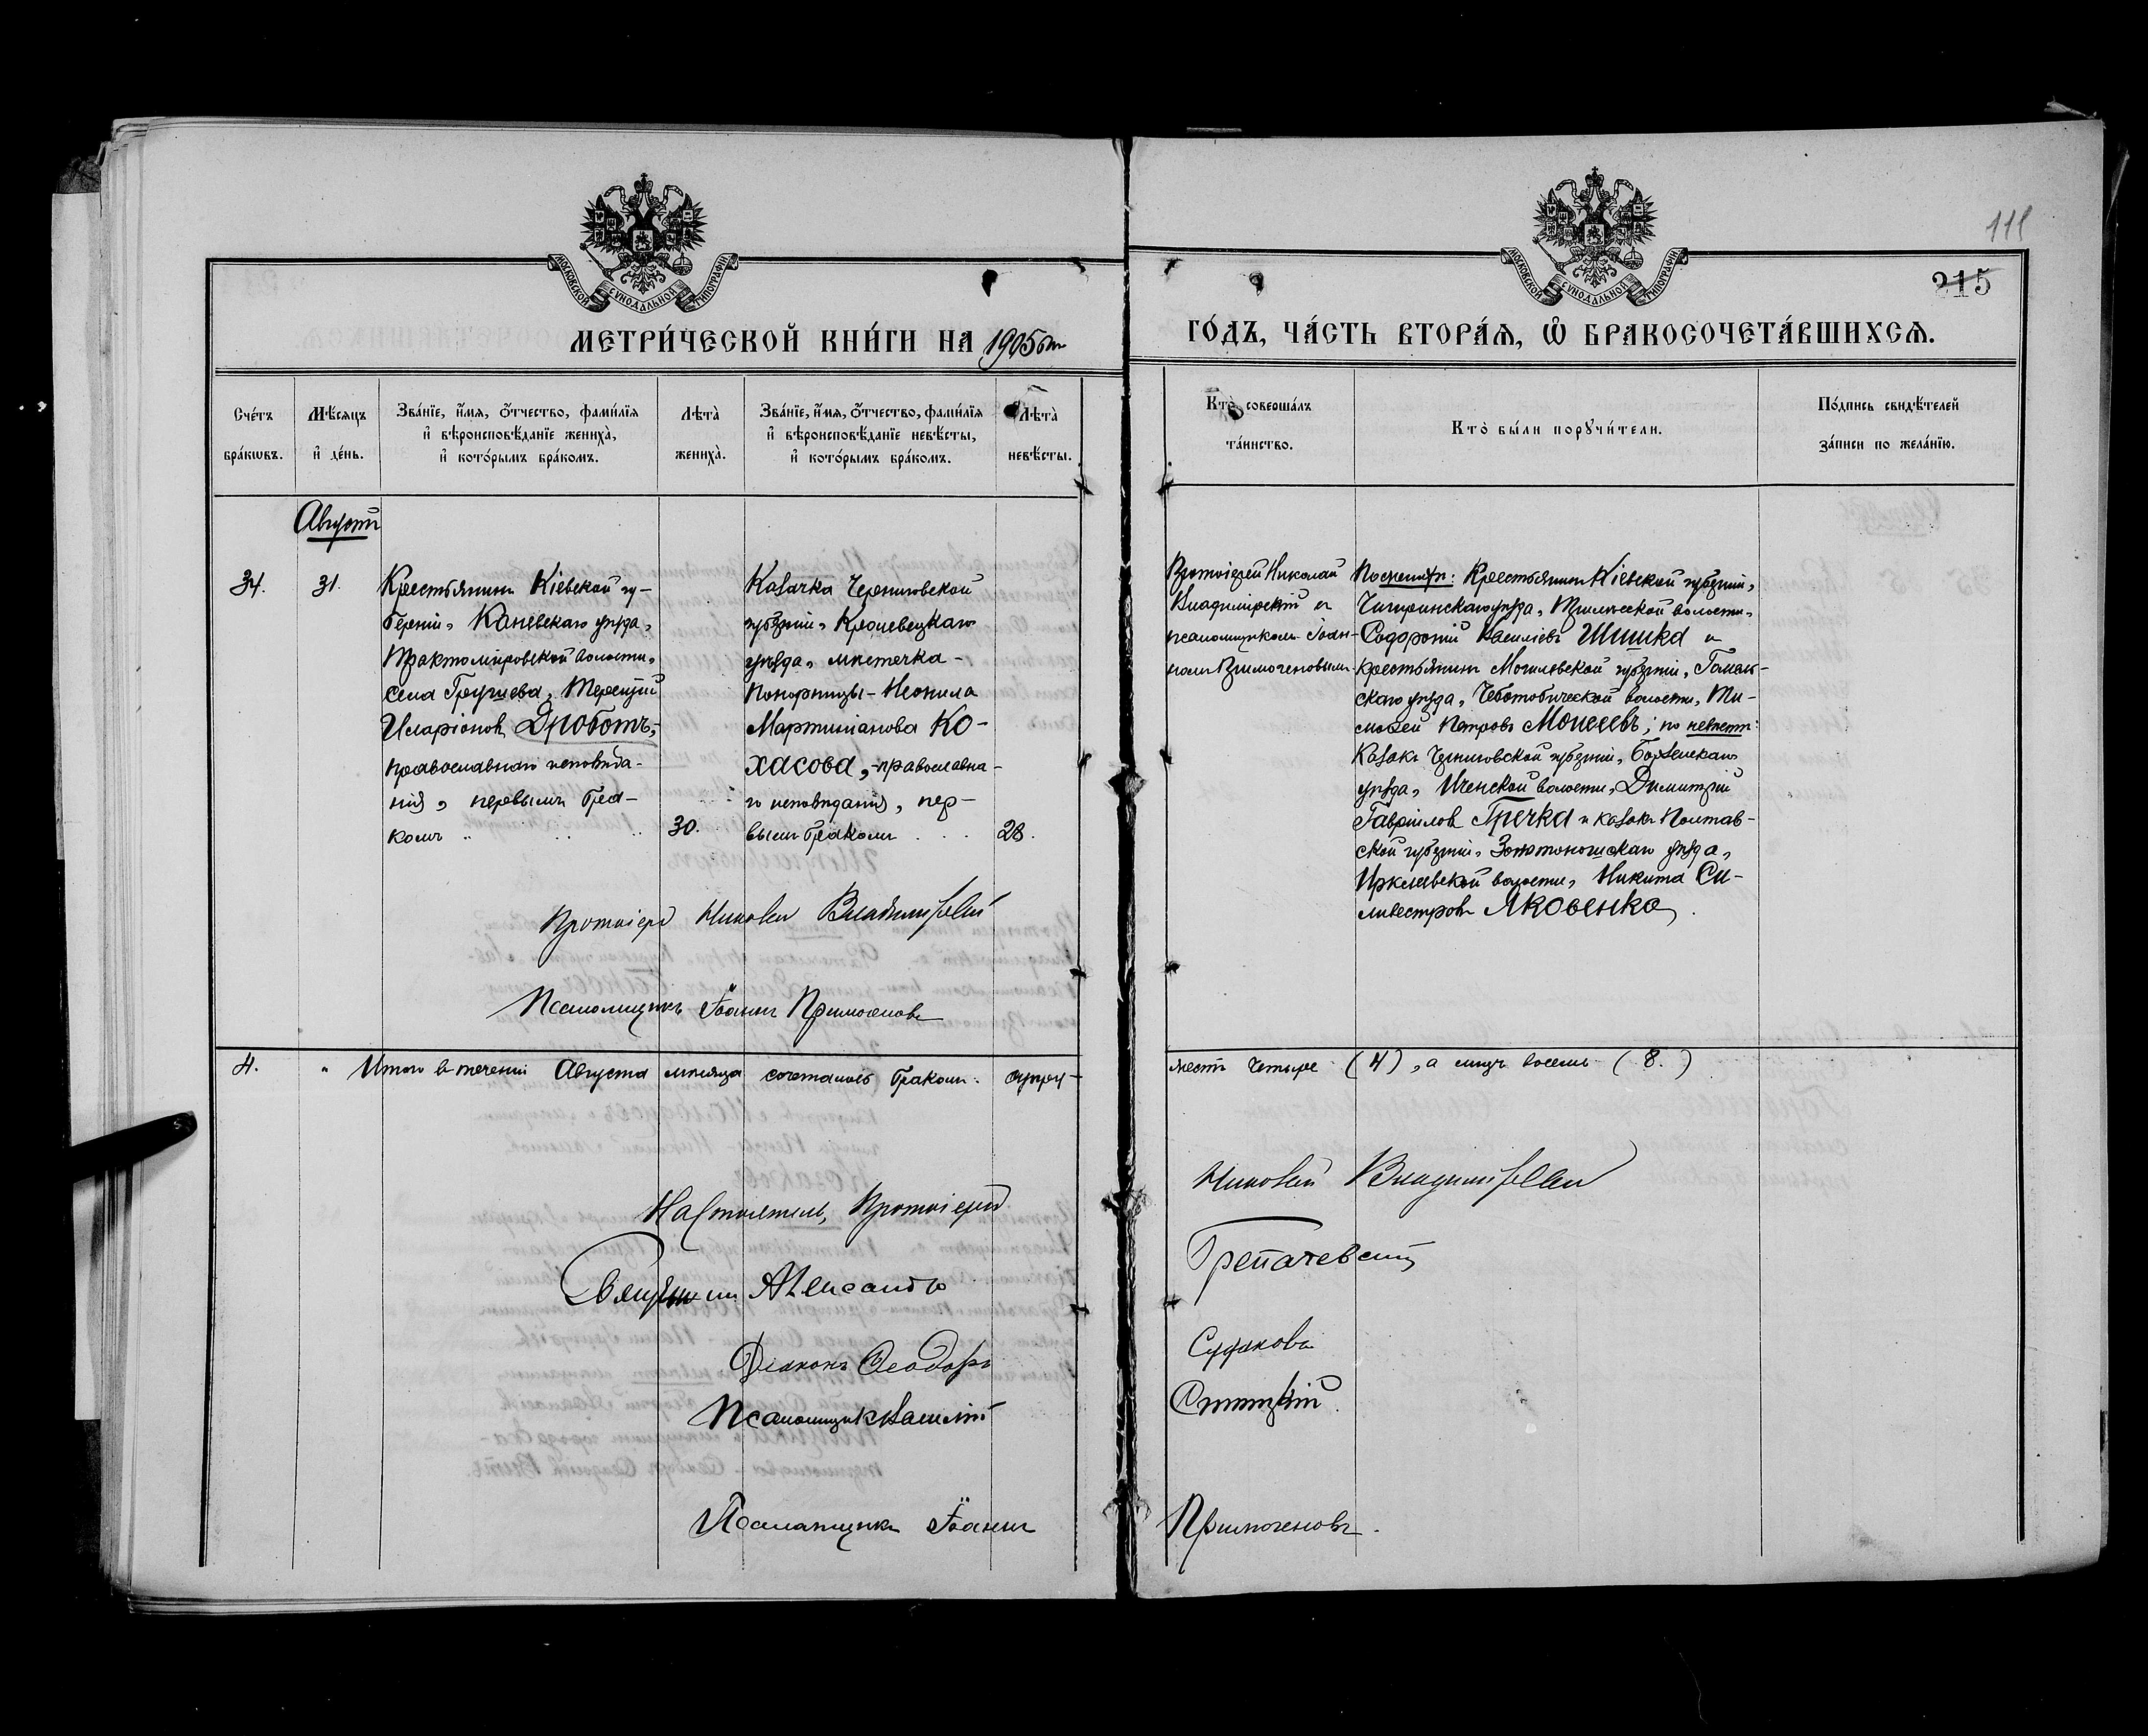 МОСКОВСКОЙ СУНОДАЛЬНОЙ ТИПОГРАФІИ
МОСКОВСКОЙ СУНОДАЛЬНОЙ ТИПОГРАФІИ
111
215
МЕТРИ́ЧЕСКОЙ КНИ́ГИ НА 1905ый
ГО́ДЪ, ЧА́СТЬ ВТОРА́Я, Ѡ БРАКОСОЧЕТА́ВШИХСЯ.
Сче́тъ бра́кѡвъ.
Мѣ́сяцъ и де́нь.
Зва́нїе, и́мя, о́тчество, фами́лїя
и вѣроисповѣ́данїе жениха̀,
и кото́рымъ бра́комъ.
Лѣта̀ жениха̀.
Зва́нїе, и́мя, о́тчество, фами́лїя
и вѣроисповѣ́данїе невѣ́сты,
и кото́рымъ бра́комъ.
Лѣта̀ невѣ́сты.
Кто̀ соверша́лъ та́инство.
Кто̀ бы́ли порꙋчи́тели.
По́дпись свидѣ́телей
за́писи по жела́нїю.
Августъ
34.
31.
Крестьянинъ Кіевской гу-
берніи, Каневскаго уѣзда,
Трактоміровской волости,
села Григуева, Терентій
Иларіоновъ Дроботъ,
православнаго исповѣда-
нія, первымъ бра-
комъ
30.
Козачка Черниговской
губерніи, Кролевецкаго
уѣзда, мѣстечка
Понорницы - Неонила
Мартиніанова Ко-
хасова, православна-
го исповѣданія, пер-
вымъ бракомъ
28.
Протоіерей Николай
Владимірскій съ
псаломщикомъ Іоан-
номъ Примогеновымъ.
По женихѣ: Крестьянинъ Кіевской губерніи,
Чигиринскаго уѣзда, волости,
Софроній Василіевъ Шишка и
крестьянинъ Могилевской губерніи, Гомель-
скаго уѣзда, волости, Ти-
моѳей Петровъ Моисеевъ; по невѣстѣ:
Козакъ Черниговской губерніи, Борзенскаго
уѣзда, Иченской волости, Димитрій
Гавріиловъ Гречка и козакъ Полтав-
ской губерніи, Золотоношскаго уѣзда,
Ирклѣевской волости, Никита Си-
ливестровъ Яковенко.
Протоіерей Николай Владимірскій
Псаломщикъ Іоаннъ Примогеновъ
4. " Итого въ теченіи Августа мѣсяца сочеталось бракомъ: супру-
жествъ четыре (4), а лицъ восемь (8.)
Настоятель, Протоіерей Николай Владимірскій
Священникъ Александръ
Діаконъ Ѳеодоръ Судаковъ
Псаломщикъ Василій
Псаломщикъ Іоаннъ Примогеновъ.